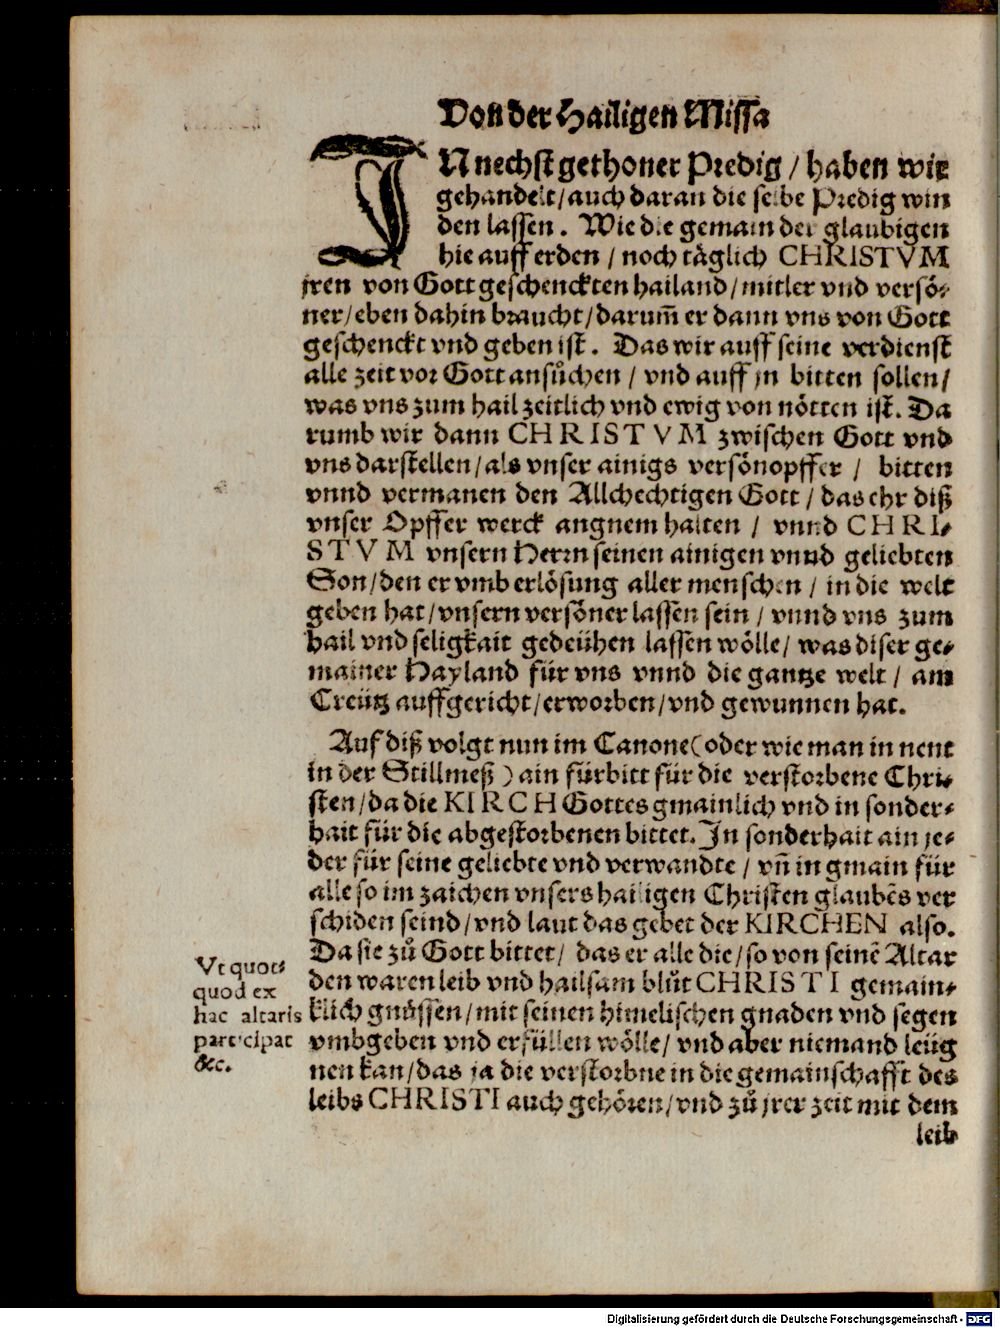 Von der Hailigen Missa
IN nechst gethoner Predig / haben wir
gehandelt / auch daran die selbe Predig win
den lassen . Wie die gemain der glaubigen
hie auff erden / noch täglich CHRISTVM
jren von Gott geschenckten hailand / mitler vnd versö⸗
ner / eben dahin braucht / darum̃ er dann vns von Gott
geschenckt vnd geben ist . Das wir auff seine verdienst
alle zeit vor Gott ansůchen / vnd auff jn bitten sollen /
was vns zum hail zeitlich vnd ewig von nötten ist. Da
rumb wir dann CHRISTVM zwischen Gott vnd
vns darstellen / als vnser ainigs versönopffer / bitten
vnnd vermanen den Allchechtigen Gott / das ehr diß
vnser Opffer werck angnem halten / vnnd CHRI⸗
STVM vnsern Herrn seinen ainigen vnnd geliebten
Son / den er vmb erlösung aller menschen / in die welt
geben hat / vnsern versöner lassen sein / vnnd vns zum
hail vnd seligkait gedeühen lassen wölle / was diser ge⸗
mainer Hayland für vns vnnd die gantze welt / am
Creütz auffgericht / erworben / vnd gewunnen hat.
Auf diß volgt nun im Canone (oder wie man in nent
in der Stillmeß) ain fürbitt für die verstorbene Chri⸗
sten / da die KIRCH Gottes gmainlich vnd in sonder⸗
hait für die abgestorbenen bittet. In sonderhait ain je⸗
der für seine geliebte vnd verwandte / vñ in gmain für
alle so im zaichen vnsers hailigen Christen glaubẽs ver
schiden seind / vnd laut das gebet der KIRCHEN also.
Da sie zů Gott bittet / das er alle die / so von seinẽ Altar
den waren leib vnd hailsam blůt CHRISTI gemain⸗
klich gnüssen / mit seinen himelischen gnaden vnd segen
vmbgeben vnd erfüllen wölle / vnd aber niemand leüg
nen kan / das ja die verstorbne in die gemainschafft des
leibs CHRISTI auch gehören / vnd zů jrer zeit mit dem
leib
Vt quot⸗
quod ex
hac altaris
participat
&c.
Digitalisierung gefördert durch die Deutsche Forschungsgemeinschaft - DFG